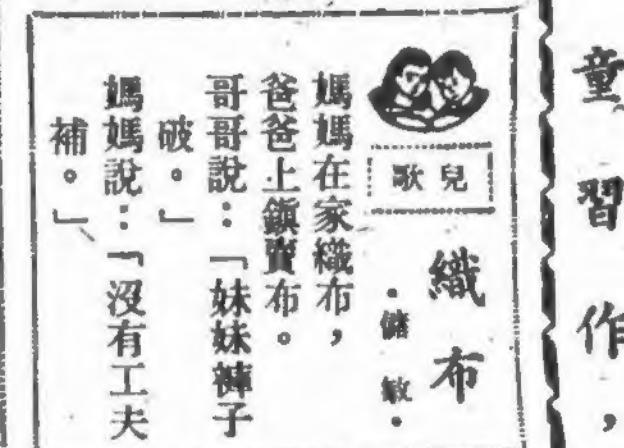 童習作，
兒歌
織布
·儲敏·
媽媽在家織布，
爸爸上鎮賣布。
哥哥說：「妹妹褲子
破。」
媽媽說：「沒有工夫
補。」